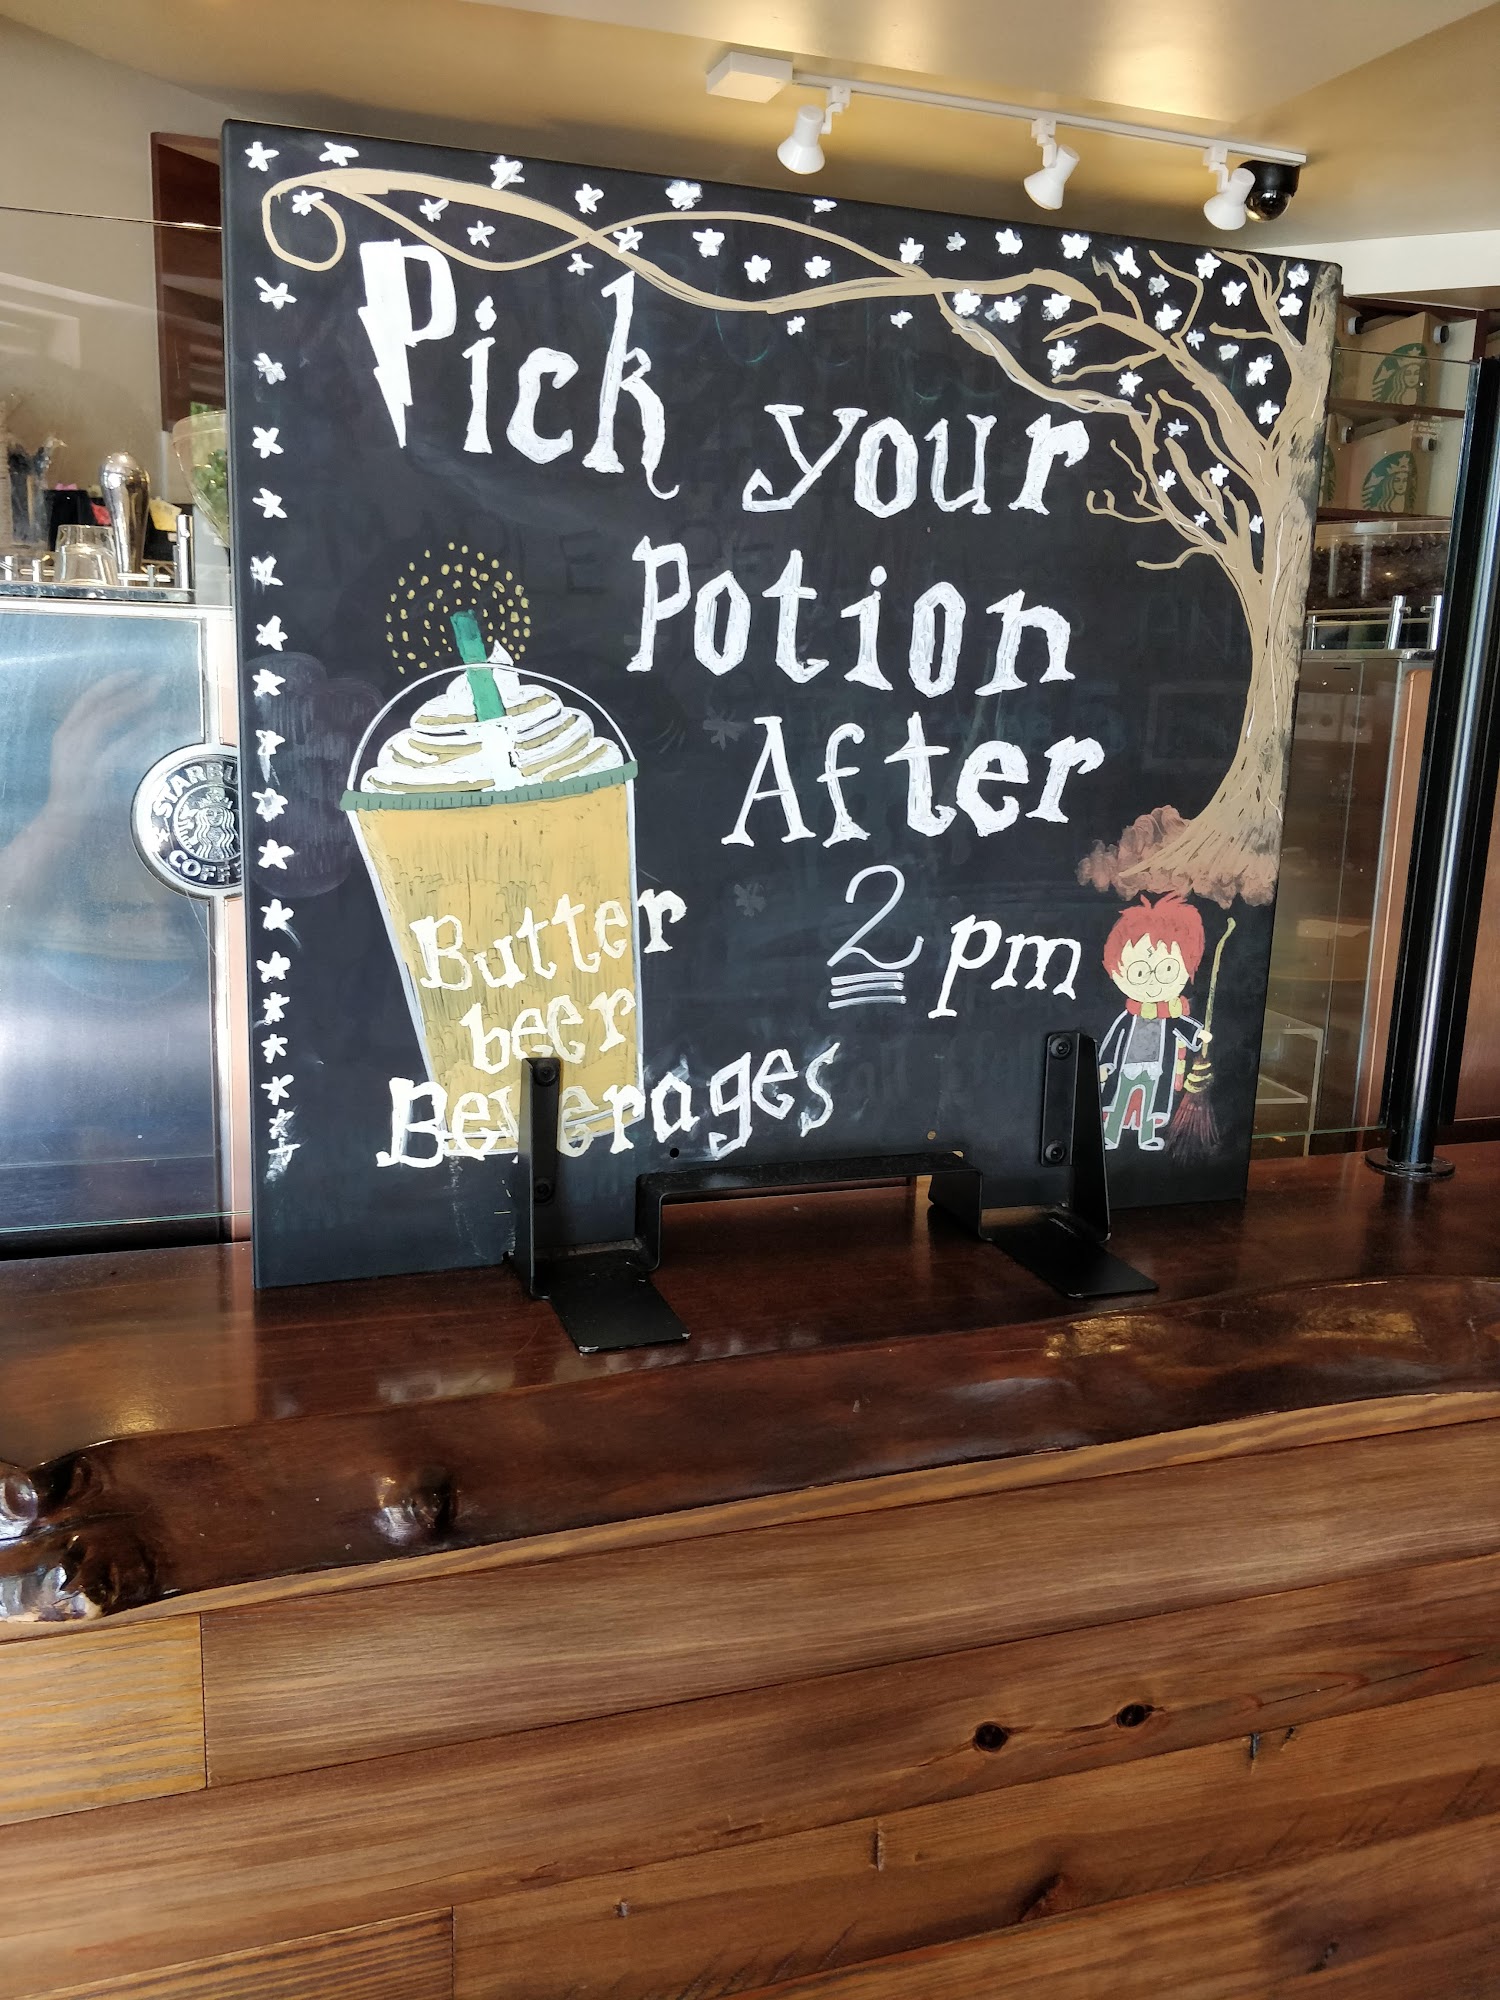 Pick your
Potion
After
2 pm
Butter
beer
Beverages
STARBU
COFF